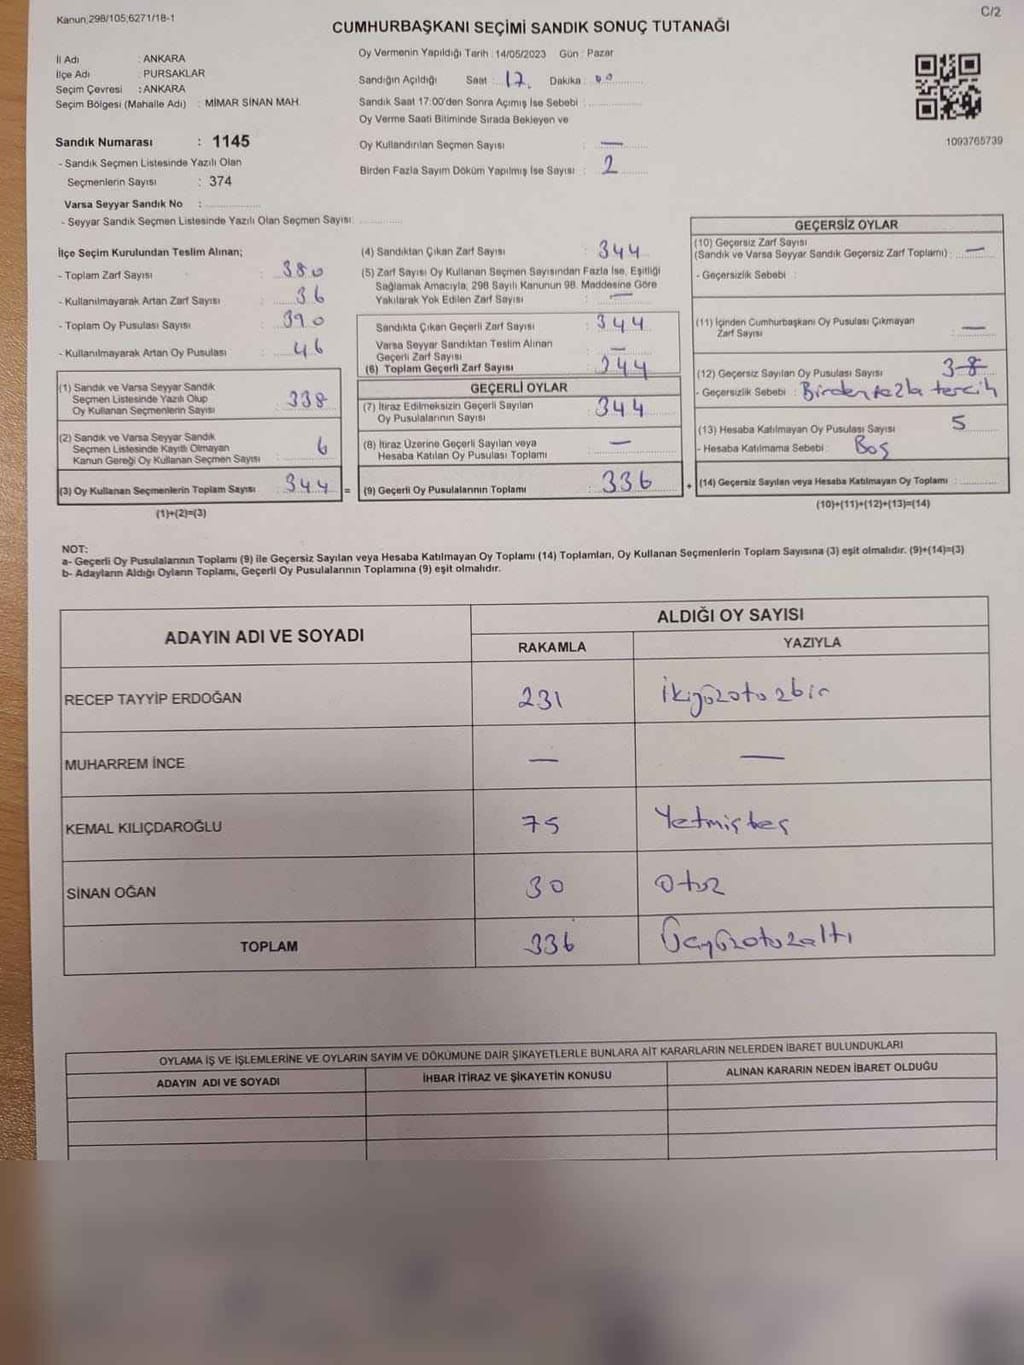 Kanun;298/105;6271/18-1
C/2
CUMHURBAŞKANI SEÇİMİ SANDIK SONUÇ TUTANAĞI
İl Adı : ANKARA
İlçe Adı : PURSAKLAR
Seçim Çevresi : ANKARA
Seçim Bölgesi (Mahalle Adı) : MİMAR SİNAN MAH.
Oy Vermenin Yapıldığı Tarih : 14/05/2023 Gün : Pazar
Sandığın Açıldığı Saat : 17. Dakika : 00
Sandık Saat 17:00'den Sonra Açımış İse Sebebi :
Oy Verme Saati Bitiminde Sırada Bekleyen ve
Oy Kullandırılan Seçmen Sayısı : —
Birden Fazla Sayım Döküm Yapılmış İse Sayısı : 2
1093765739
Sandık Numarası : 1145
- Sandık Seçmen Listesinde Yazılı Olan
Seçmenlerin Sayısı : 374
Varsa Seyyar Sandık No :
- Seyyar Sandık Seçmen Listesinde Yazılı Olan Seçmen Sayısı:
İlçe Seçim Kurulundan Teslim Alınan;
- Toplam Zarf Sayısı : 380
- Kullanılmayarak Artan Zarf Sayısı : 36
- Toplam Oy Pusulası Sayısı : 390
- Kullanılmayarak Artan Oy Pusulası : 46
(1) Sandık ve Varsa Seyyar Sandık
Seçmen Listesinde Yazılı Olup
Oy Kullanan Seçmenlerin Sayısı : 338
(2) Sandık ve Varsa Seyyar Sandık
Seçmen Listesinde Kayıtlı Olmayan
Kanun Gereği Oy Kullanan Seçmen Sayısı : 6
(3) Oy Kullanan Seçmenlerin Toplam Sayısı : 344 =
(1)+(2)=(3)
(4) Sandıktan Çıkan Zarf Sayısı : 344
(5) Zarf Sayısı Oy Kullanan Seçmen Sayısından Fazla İse, Eşitliği
Sağlamak Amacıyla, 298 Sayılı Kanunun 98. Maddesine Göre
Yakılarak Yok Edilen Zarf Sayısı : —
Sandıkta Çıkan Geçerli Zarf Sayısı : 344
Varsa Seyyar Sandıktan Teslim Alınan
Geçerli Zarf Sayısı : —
(6) Toplam Geçerli Zarf Sayısı : 344
GEÇERLİ OYLAR
(7) İtiraz Edilmeksizin Geçerli Sayılan
Oy Pusulalarının Sayısı : 344
(8) İtiraz Üzerine Geçerli Sayılan veya
Hesaba Katılan Oy Pusulası Toplamı : —
(9) Geçerli Oy Pusulalarının Toplamı : 336 +
GEÇERSİZ OYLAR
(10) Geçersiz Zarf Sayısı
(Sandık ve Varsa Seyyar Sandık Geçersiz Zarf Toplamı) : —
- Geçersizlik Sebebi :
(11) İçinden Cumhurbaşkanı Oy Pusulası Çıkmayan
Zarf Sayısı : —
(12) Geçersiz Sayılan Oy Pusulası Sayısı : 3 8
- Geçersizlik Sebebi : Birden fazla tercih
(13) Hesaba Katılmayan Oy Pusulası Sayısı : 5
- Hesaba Katılmama Sebebi : Boş
(14) Geçersiz Sayılan veya Hesaba Katılmayan Oy Toplamı :
(10)+(11)+(12)+(13)=(14)
NOT:
a- Geçerli Oy Pusulalarının Toplamı (9) ile Geçersiz Sayılan veya Hesaba Katılmayan Oy Toplamı (14) Toplamları, Oy Kullanan Seçmenlerin Toplam Sayısına (3) eşit olmalıdır. (9)+(14)=(3)
b- Adayların Aldığı Oyların Toplamı, Geçerli Oy Pusulalarının Toplamına (9) eşit olmalıdır.
ADAYIN ADI VE SOYADI
ALDIĞI OY SAYISI
RAKAMLA YAZIYLA
RECEP TAYYİP ERDOĞAN 231 İkiyüzotuzbir
MUHARREM İNCE — —
KEMAL KILIÇDAROĞLU 75 Yetmişbeş
SİNAN OĞAN 30 Otuz
TOPLAM 336 Üçyüzotuzaltı
OYLAMA İŞ VE İŞLEMLERİNE VE OYLARIN SAYIM VE DÖKÜMÜNE DAİR ŞİKAYETLERLE BUNLARA AİT KARARLARIN NELERDEN İBARET BULUNDUKLARI
ADAYIN ADI VE SOYADI İHBAR İTİRAZ VE ŞİKAYETİN KONUSU ALINAN KARARIN NEDEN İBARET OLDUĞU